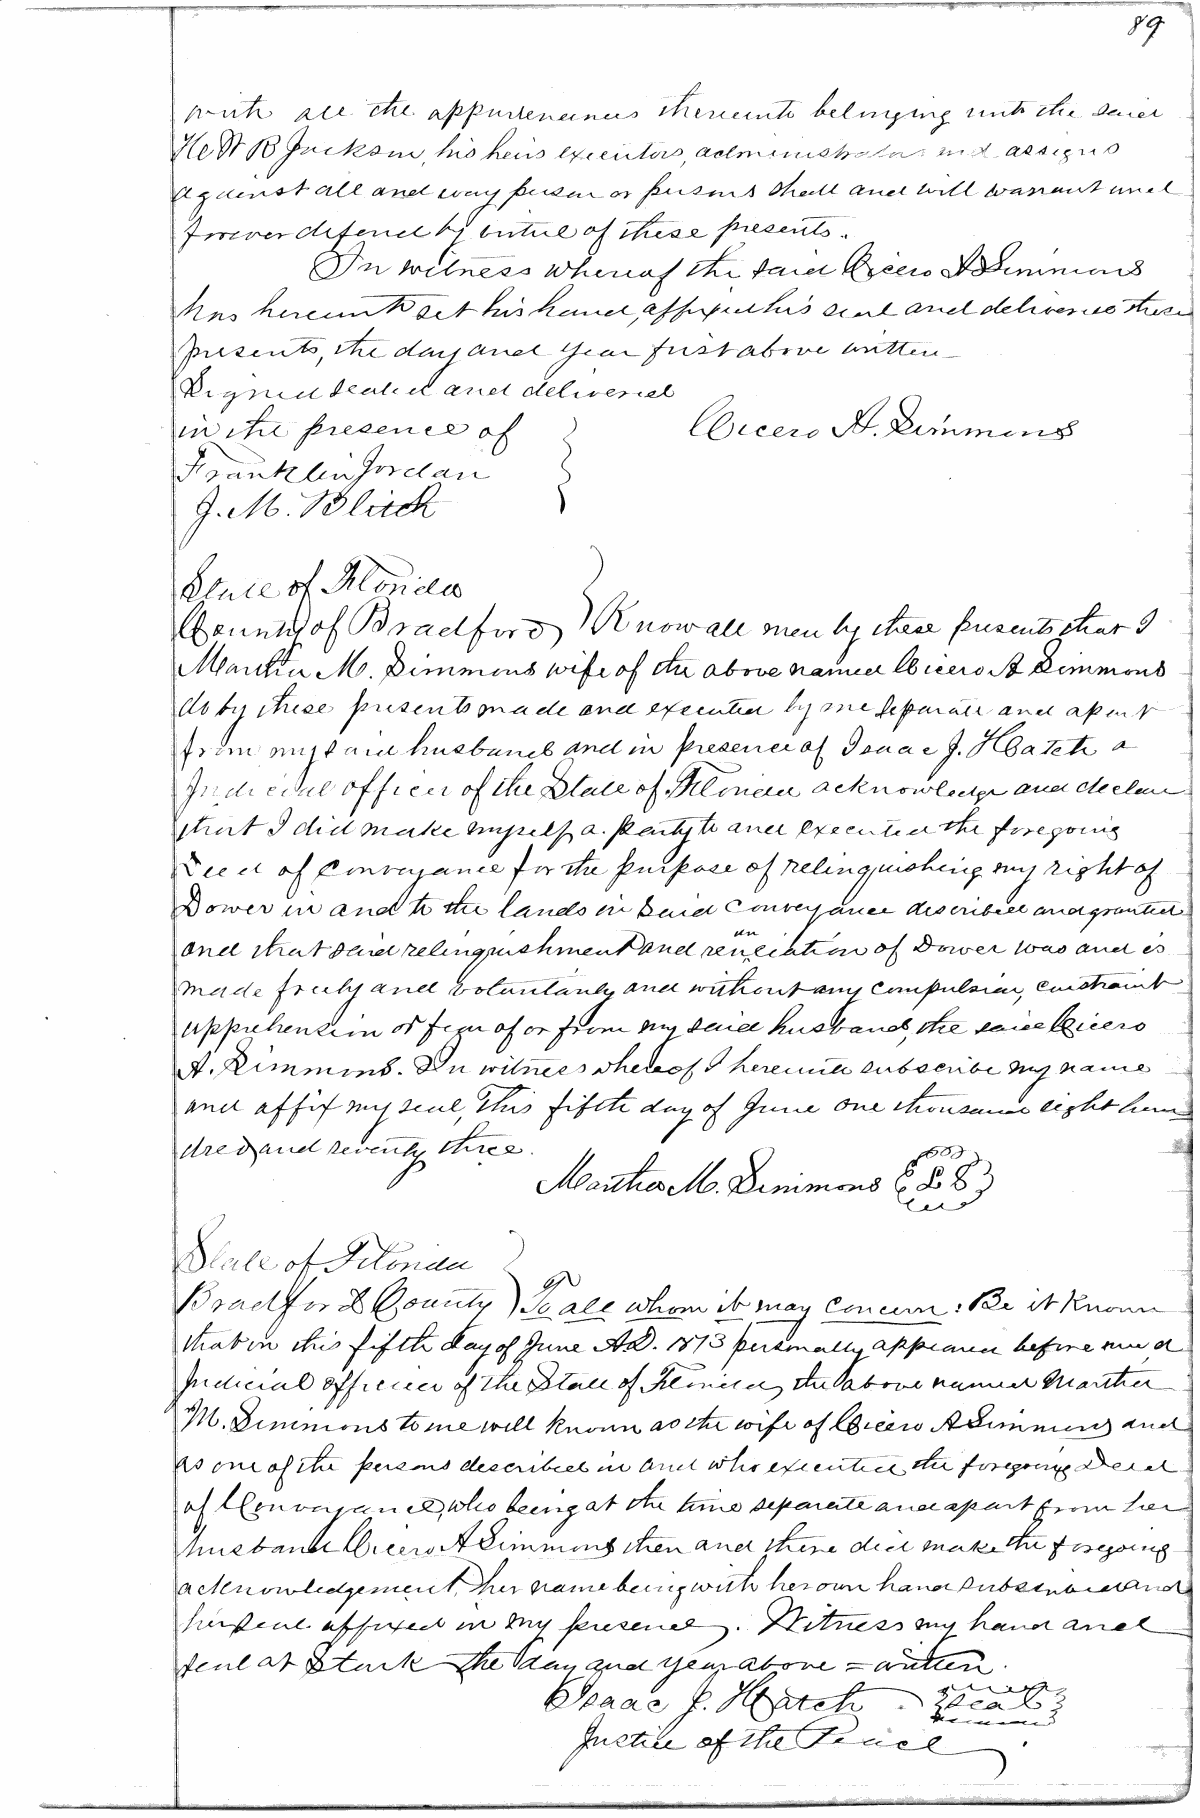 89
with all the appurtenances thereunto belonging unto the said
H W B Jackson, his heirs executors, administrators and assigns
against all and every person or persons shall and will warrant and
forever defend by virtue of these presents.
In witness whereof the said Cicero A Simmons
has hereunto set his hand, affixed his seal and delivered these
presents, the day and year first above written
Signed sealed and delivered
in the presence of
Cicero A. Simmons
Franklin Jordan
J. M. Blitch
State of Florida
County of Bradford } Know all men by these presents that I
Martha M. Simmons wife of the above named Cicero A Simmons
do by these presents made and executed by me separate and apart
from my said husband and in presence of Isaac J. Hatch a
Judicial officer of the State of Florida acknowledge and declare
that I did make myself a party to and executed the foregoing
Deed of Conveyance for the purpose of relinquishing my right of
Dower in and to the lands in said Conveyance described and granted
and that said relinquishment and renunciation of Dower was and is
made freely and voluntarily and without any compulsion, constraint
apprehension or fear of or from my said husband, the said Cicero
A. Simmons. In witness whereof I hereunto subscribe my name
and affix my seal, this fifth day of June one thousand eight hun
dred and seventy three.
Martha M. Simmons { L S }
State of Florida
Bradford County } To all whom it may concern: Be it Known
that on this fifth day of June A.D. 1873 personally appeared before me, a
Judicial officer of the State of Florida, the above named Martha
M. Simmons to me well known as the wife of Cicero A Simmons and
as one of the persons described in and who executed the foregoing Deed
of Conveyance, who being at the time separate and apart from her
husband Cicero A Simmons then and there did make the foregoing
acknowledgement, her name being with her own hand subscribed and
her seal affixed in my presence. Witness my hand and
seal at Stark the day and year above = written.
Isaac J. Hatch. {seal}
Justice of the Peace